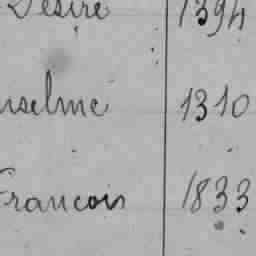 Désiré 1394
nselme 1310
François 1833